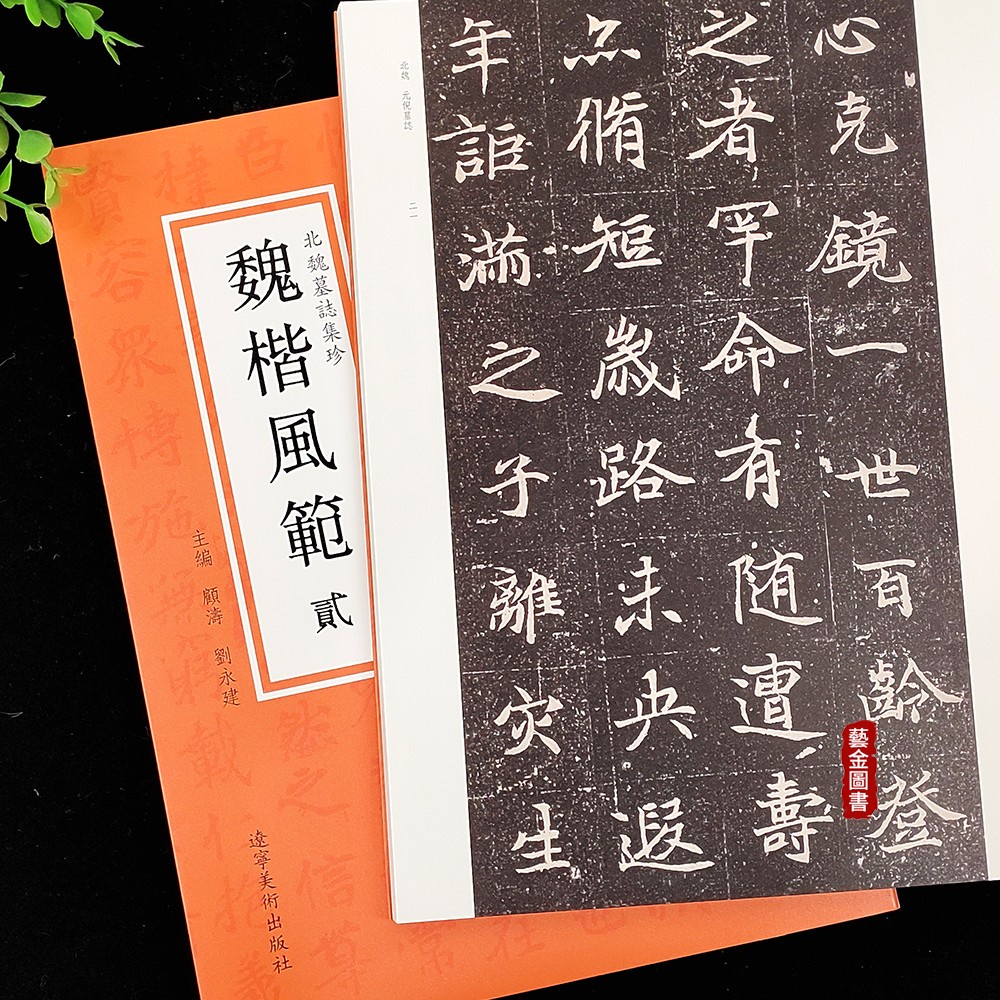 北魏墓誌集珍
魏楷風範 貳
主編 顧濤 劉永建
遼寧美術出版社
北魏 元倪墓誌
二一
心克鏡一世百齡登
之者罕命有随遭壽
亦脩短歲路未央遐
年詎滿之子離灾生
藝金圖書